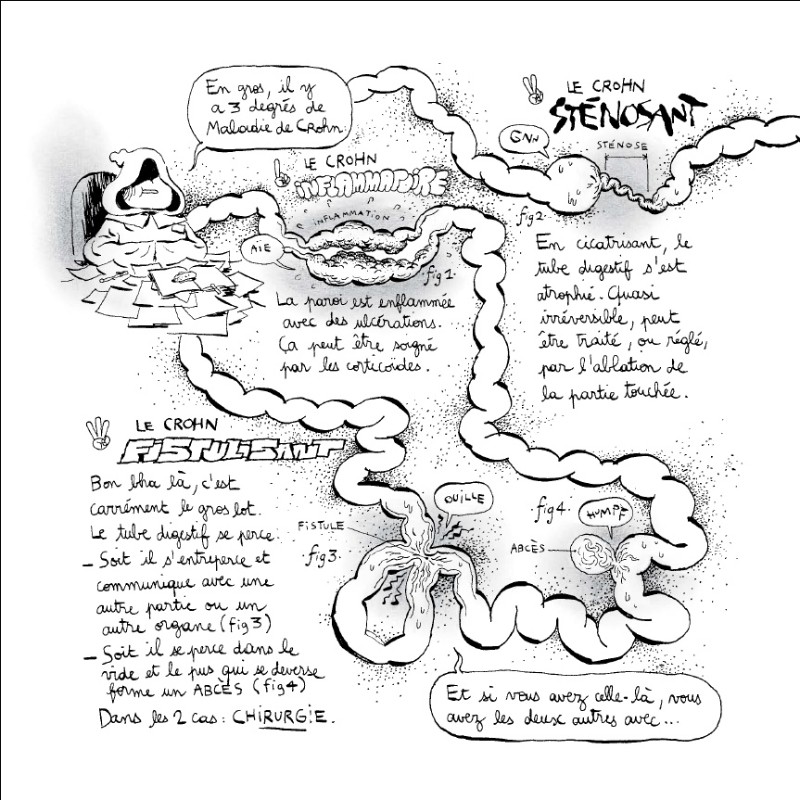 En gros, il y
a 3 degrés de
Maladie de Crohn.
LE CROHN
INFLAMMATOIRE
INFLAMMATION
AÏE
fig 1.
La paroi est enflammée
avec des ulcérations.
Ça peut être soigné
par les corticoïdes.
LE CROHN
STÉNOSANT
GNN
STÉNOSE
fig 2.
En cicatrisant, le
tube digestif s'est
atrophié. Quasi
irréversible, peut
être traité, ou réglé,
par l'ablation de
la partie touchée.
LE CROHN
FISTULISANT
Bon bha là, c'est
carrément le gros lot.
Le tube digestif se perce.
– Soit il s'entreperce et
communique avec une
autre partie ou un
autre organe (fig 3)
– Soit il se perce dans le
vide et le pus qui se déverse
forme un ABCÈS (fig 4)
Dans les 2 cas : CHIRURGIE.
OUILLE
FISTULE
fig 3.
fig 4.
HUMPF
ABCÈS
Et si vous avez celle-là, vous
avez les deux autres avec...